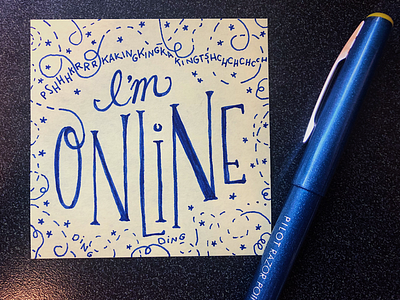 PSHHHKKRRRRKAKINGKINGKAKINGTSHCHCHCHCCH
I'm
ONLINE
DING
DING
PILOT RAZOR POIN